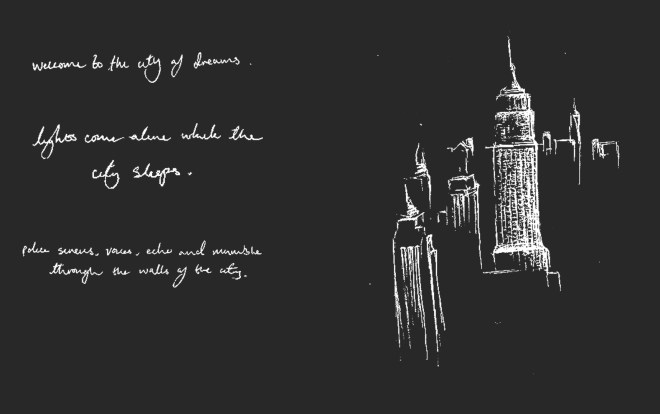 welcome to the city of dreams.
lights come alive while the
city sleeps.
police sirens, voices, echo and
through the walls of the city.